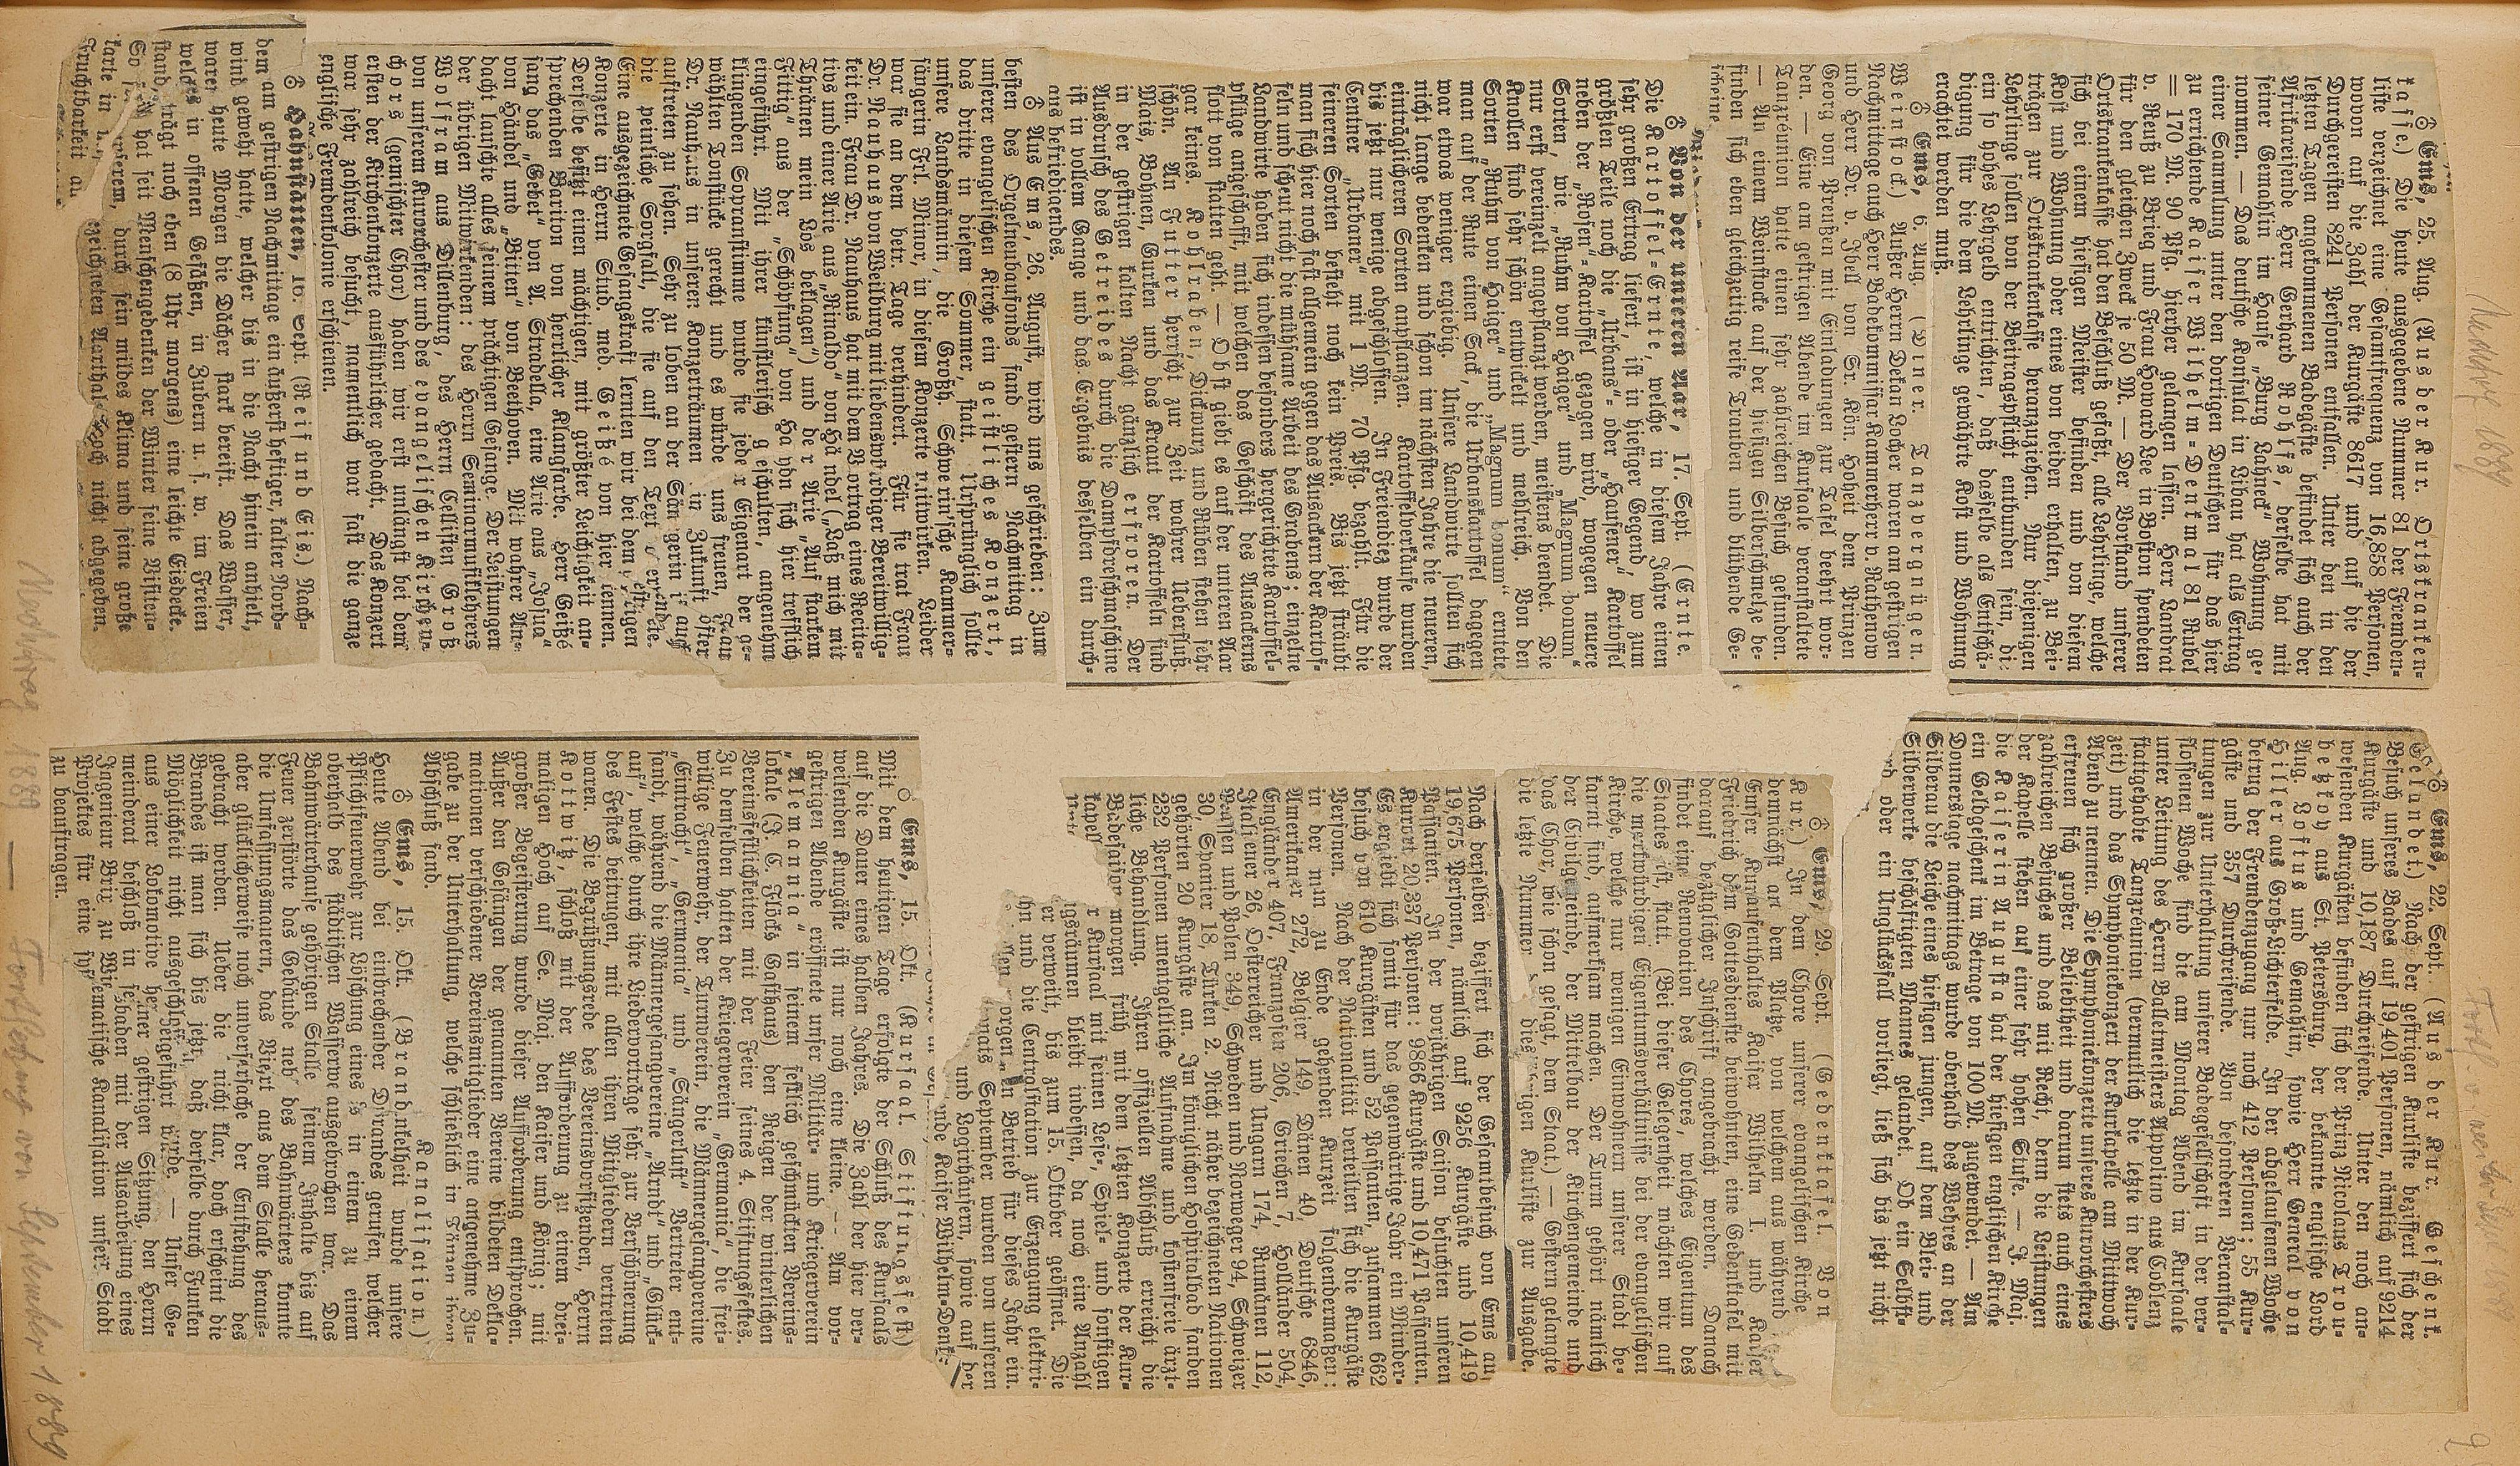 Nachtrag 1889
⚲ Ems, 25. Aug. (Aus der Kur. Ortskranken-
kasse.) Die heute ausgegebene Nummer 81 der Fremden-
liste verzeichnet eine Gesamtfrequenz von 16,858 Personen,
wovon auf die Zahl der Kurgäste 8617 und auf die der
Durchgereisten 8241 Personen entfallen. Unter den in den
letzten Tagen angekommenen Badegäste befindet sich auch der
Afrikareisende Herr Gerhard Rohlfs, derselbe hat mit
seiner Gemahlin im Hause „Burg Lahneck“ Wohnung ge-
nommen. — Das deutsche Konsulat in Libau hat als Ertrag
einer Sammlung unter den dortigen Deutschen für das hier
zu errichtende Kaiser Wilhelm-Denkmal 81 Rubel
= 170 M. 90 Pfg. hierher gelangen lassen. Herr Landrat
v. Reuß zu Brieg und Frau Howard Lee in Boston spendeten
für den gleichen Zweck je 50 M. — Der Vorstand unserer
Ortskrankenkasse hat den Beschluß gefaßt, alle Lehrlinge, welche
sich bei einem hiesigen Meister befinden und von diesem
Kost und Wohnung oder eines von beiden erhalten, zu Bei-
trägen zur Ortskrankenkasse heranzuziehen. Nur diejenigen
Lehrlinge sollen von der Beitragspflicht entbunden sein, die
ein so hohes Lehrgeld entrichten, daß dasselbe als Entschä-
digung für die dem Lehrlinge gewährte Kost und Wohnung
erachtet werden muß.
⚲ Ems, 6. Aug. (Diner. Tanzvergnügen.
Weinstock.) Außer Herrn Dekan Vocher waren am gestrigen
Nachmittage auch Herr Badekommissar Kammerherr v. Rathenow
und Herr Dr. v. Ibell von Sr. Kön. Hoheit dem Prinzen
Georg von Preußen mit Einladungen zur Tafel beehrt wor-
den. — Eine am gestrigen Abende im Kursaale veranstaltete
Tanzréunion hatte einen sehr zahlreichen Besuch gefunden.
— An einem Weinstocke auf der hiesigen Silberschmelze be-
finden sich eben gleichzeitig reife Trauben und blühende Ge-
scheine.
⚲ Von der unteren Aar, 17. Sept. (Ernte.)
Die Kartoffel-Ernte, welche in diesem Jahre einen
sehr großen Ertrag liefert, ist in hiesiger Gegend, wo zum
größten Teile noch die „Urbans“- oder „Hausener“ Kartoffel
neben der „Rosen“-Kartoffel gezogen wird, wogegen neuere
Sorten, wie „Ruhm von Haiger“ und „Magnum bonum“
nur erst vereinzelt angepflanzt werden, meistens beendet. Die
Knollen sind sehr schön entwickelt und mehlreich. Von den
Sorten „Ruhm von Haiger“ und „Magnum bonum“ erntete
man auf der Rute einen Sack, die Urbanskartoffel dagegen
war etwas weniger ergiebig. Unsere Landwirte sollten sich
nicht lange bedenken und schon im nächsten Jahre die neueren,
einträglicheren Sorten anpflanzen. Kartoffelverkäufe wurden
bis jetzt nur wenige abgeschlossen. In Freiendiez wurde der
Centner „Urbaner“ mit 1 M. 70 Pfg. bezahlt. Für die
feineren Sorten besteht noch kein Preis. Bis jetzt sträubt
man sich hier noch fast allgemein gegen das Ausackern der Kartof-
feln und scheut nicht die mühsame Arbeit des Grabens; einzelne
Landwirte haben sich indessen besonders hergerichtete Kartoffel-
pflüge angeschafft, mit welchen das Geschäft des Ausackerns
flott von statten geht. — Obst giebt es auf der unteren Aar
gar keines. Kohlraben, Dickwurz und Rüben stehen sehr
schön. An Futter herrscht zur Zeit wahrer Ueberfluß.
Mais, Bohnen, Gurken und das Kraut der Kartoffeln sind
in der gestrigen kalten Nacht gänzlich erfroren. Der
Ausdrusch des Getreides durch die Dampfdreschmaschine
ist in vollem Gange und das Ergebnis desselben ein durch-
aus befriedigendes.
⚲ Aus Ems, 26. August, wird uns geschrieben: Zum
besten des Orgelneubaufonds fand gestern Nachmittag in
unserer evangelischen Kirche ein geistliches Konzert,
das dritte in diesem Sommer, statt. Ursprünglich sollte
unsere Landsmännin, die Großh. Schwerin'sche Kammer-
sängerin Frl. Minor, in diesem Konzerte mitwirken. Leider
war sie an dem betr. Tage verhindert. Für sie trat Frau
Dr. Nauhaus von Weilburg mit liebenswürdiger Bereitwillig-
keit ein. Frau Dr. Nauhaus hat mit dem Vortrag eines Recita-
tivs und einer Arie aus „Rinaldo“ von Händel („Laß mich mit
Thränen mein Los beklagen“) und der Arie „Auf starkem
Fittig“ aus der „Schöpfung“ von Haydn sich hier trefflich
eingeführt. Mit ihrer künstlerisch geschulten, angenehm
klingenden Sopranstimme wurde sie jeder Eigenart der ge-
wählten Tonstücke gerecht und es würde uns freuen, Frau
Dr. Nauhaus in unseren Konzerträumen in Zukunft öfter
auftreten zu sehen. Sehr zu loben an der Sängerin ist auch
die peinliche Sorgfalt, die sie auf den Text verwendete.
Eine ausgezeichnete Gesangskraft lernten wir bei dem gestrigen
Konzerte in Herrn Stud. med. Geißé von hier kennen.
Derselbe besitzt einen mächtigen, mit größter Leichtigkeit an-
sprechenden Bariton von herrlicher Klangfarbe. Herr Geißé
sang das „Gebet“ von A. Stradella, eine Arie aus „Josua“
von Händel und „Bitten“ von Beethoven. Mit wahrer An-
dacht lauschte alles seinem prächtigen Gesange. Der Leistungen
der übrigen Mitwirkenden: des Herrn Seminarmusiklehrers
Wolfram aus Dillenburg, des Herrn Cellisten Groß
von unserem Kurorchester und des evangelischen Kirchen-
chors (gemischter Chor) haben wir erst unlängst bei dem
ersten der Kirchenkonzerte ausführlicher gedacht. Das Konzert
war sehr zahlreich besucht, namentlich war fast die ganze
englische Fremdenkolonie erschienen.
⚲ Hahnstätten, 16. Sept. (Reif und Eis.) Nach-
dem am gestrigen Nachmittage ein äußerst heftiger, kalter Nord-
wind geweht hatte, welcher bis in die Nacht hinein anhielt,
waren heute Morgen die Dächer stark bereift. Das Wasser,
welches in offenen Gefäßen, in Zubern u. s. w. im Freien
stand, trägt noch eben (8 Uhr morgens) eine leichte Eisdecke.
So früh hat seit Menschengedenken der Winter seine Visiten-
karte in unserem, durch sein mildes Klima und seine große
Fruchtbarkeit ausgezeichneten Aarthale noch nicht abgegeben.
Nachtrag 1889 — Fortsetzung von September 1889
9
⚲ Ems, 22. Sept. (Aus der Kur. Geschenk.
Gelandet.) Nach der gestrigen Kurliste beziffert sich der
Besuch unseres Bades auf 19401 Personen, nämlich auf 9214
Kurgäste und 10,187 Durchreisende. Unter den noch an-
wesenden Kurgästen befinden sich der Prinz Nicolaus Trou-
betzkoy aus St. Petersburg, der bekannte englische Lord
Aug. Loftus und Gemahlin, sowie Herr General von
Hiller aus Groß-Lichterfelde. In der abgelaufenen Woche
betrug der Fremdenzugang nur noch 412 Personen; 55 Kur-
gäste und 357 Durchreisende. Von besonderen Veranstal-
tungen zur Unterhaltung unserer Badegesellschaft in der ver-
flossenen Woche sind die am Montag Abend im Kursaale
unter Leitung des Herrn Balletmeisters Apolino aus Coblenz
stattgehabte Tanzréunion (vermutlich die letzte in der Kur-
zeit) und das Symphoniekonzert der Kurkapelle am Mittwoch
Abend zu nennen. Die Symphoniekonzerte unseres Kurorchesters
erfreuen sich großer Beliebtheit und darum stets auch eines
zahlreichen Besuches und das mit Recht, denn die Leistungen
der Kapelle stehen auf einer sehr hohen Stufe. — J. Maj.
die Kaiserin Augusta hat der hiesigen englischen Kirche
ein Geldgeschenk im Betrage von 100 M. zugewendet. — Am
Donnerstage nachmittags wurde oberhalb des Wehres an der
Silberau die Leiche eines hiesigen jungen, auf dem Blei- und
Silberwerke beschäftigten Mannes gelandet. Ob ein Selbst-
mord oder ein Unglücksfall vorliegt, ließ sich bis jetzt nicht
⚲ Ems, 29. Sept. (Gedenktafel. Von
Kur.) In dem Chore unserer evangelischen Kirche
demnächst an dem Platze, von welchem aus während
Emser Kuraufenthaltes Kaiser Wilhelm I. und Kaiser
Friedrich dem Gottesdienste beiwohnten, eine Gedenktafel mit
darauf bezüglicher Inschrift angebracht werden. Danach
findet eine Renovation des Chores, welches Eigentum des
Staates ist, statt. (Bei dieser Gelegenheit möchten wir auf
die merkwürdigen Eigentumsverhältnisse bei der evangelischen
Kirche, welche nur wenigen Einwohnern unserer Stadt be-
kannt sind, aufmerksam machen. Der Turm gehört nämlich
der Civilgemeinde, der Mittelbau der Kirchengemeinde und
das Chor, wie schon gesagt, dem Staat.) — Gestern gelangte
die letzte Nummer der diesjährigen Kurliste zur Ausgabe.
Nach derselben beziffert sich der Gesamtbesuch von Ems auf
19,675 Personen, nämlich auf 9256 Kurgäste und 10,419
Passanten. In der vorjährigen Saison besuchten unseren
Kurort 20,337 Personen: 9866 Kurgäste und 10,471 Passanten.
Es ergiebt sich somit für das gegenwärtige Jahr ein Minder-
besuch von 610 Kurgästen und 52 Passanten, zusammen 662
Personen. Nach der Nationalität verteilen sich die Kurgäste
in der nun zu Ende gehenden Kurzeit folgendermaßen:
Amerikaner 272, Belgier 149, Dänen 40, Deutsche 6846,
Engländer 407, Franzosen 206, Griechen 7, Holländer 504,
Italiener 26, Oesterreicher und Ungarn 174, Rumänen 112,
Russen und Polen 349, Schweden und Norweger 94, Schweizer
30, Spanier 18, Türken 2. Nicht näher bezeichneten Nationen
gehörten 20 Kurgäste an. Im königlichen Hospitalbad fanden
252 Personen unentgeltliche Aufnahme und kostenfreie ärzt-
liche Behandlung. Ihren offiziellen Abschluß erreicht die
Badesaison morgen früh mit dem letzten Konzerte der Kur-
kapelle. Der Kursaal mit seinen Lese-, Spiel- und sonstigen
bleibt indessen, da noch eine Anzahl
verweilt, bis zum 15. Oktober geöffnet. Die
und die Centralstation zur Erzeugung elektri-
morgen den Betrieb für dieses Jahr ein.
Monats September wurden von unseren
und Logirhäusern, sowie auf der
Kaiser Wilhelm-Denk-
⚲ Ems, 15. Okt. (Kursaal. Stiftungsfest)
Mit dem heutigen Tage erfolgte der Schluß des Kursaals
auf die Dauer eines halben Jahres. Die Zahl der hier ver-
weilenden Kurgäste ist nur noch eine kleine. — Am vor-
gestrigen Abende eröffnete unser Militär- und Kriegerverein
„Alemannia“ in seinem festlich geschmückten Vereins-
lokale (J. C. Flöcks Gasthaus) den Reigen der winterlichen
Vereinsfestlichkeiten mit der Feier seines 4. Stiftungsfestes
Zu demselben hatten der Kriegerverein „Germania“, die frei-
willige Feuerwehr, der Turnverein, die Männergesangvereine
„Eintracht“, „Germonia“ und „Sängerlust“ Vertreter ent-
sandt, während die Männergesangvereine „Arndt“ und „Glück-
auf“, welche durch ihre Liedervorträge sehr zur Verschönerung
des Festes beitrugen, mit allen ihren Mitgliedern vertreten
waren. Die Begrüßungsrede des Vereinsvorsitzenden, Herrn
Kottwitz, schloß mit der Aufforderung zu einem drei-
maligen Hoch auf Se. Maj. den Kaiser und König; mit
großer Begeisterung wurde dieser Aufforderung entsprochen.
Außer den Gesängen der genannten Vereine bildeten Dekla-
mationen verschiedener Vereinsmitglieder eine angenehme Zu-
gabe zu der Unterhaltung, welche schließlich in Tänzen ihren
Abschluß fand.
⚲ Ems, 15. Okt. (Brand. Kanalisation.)
Heute Abend bei einbrechender Dunkelheit wurde unsere
Pflichtfeuerwehr zur Löschung eines Brandes gerufen, welcher
oberhalb des städtischen Wasserwerks in einem zu einem
Bahnwärterhause gehörigen Stalle ausgebrochen war. Das
Feuer zerstörte das Gebäude nebst seinem Inhalte bis auf
die Umfassungsmauern, das Vieh des Bahnwärters konnte
aber glücklicherweise noch unversehrt aus dem Stalle heraus-
gebracht werden. Ueber die Ursache der Entstehung des
Brandes ist man sich bis jetzt nicht klar, doch erscheint die
Möglichkeit nicht ausgeschlossen, daß derselbe durch Funken
aus einer Lokomotive herbeigeführt wurde. — Unser Ge-
meinderat beschloß in seiner gestrigen Sitzung, den Herrn
Ingenieur Brix zu Wiesbaden mit der Ausarbeitung eines
Projektes für eine systematische Kanalisation unserer Stadt
zu beauftragen.